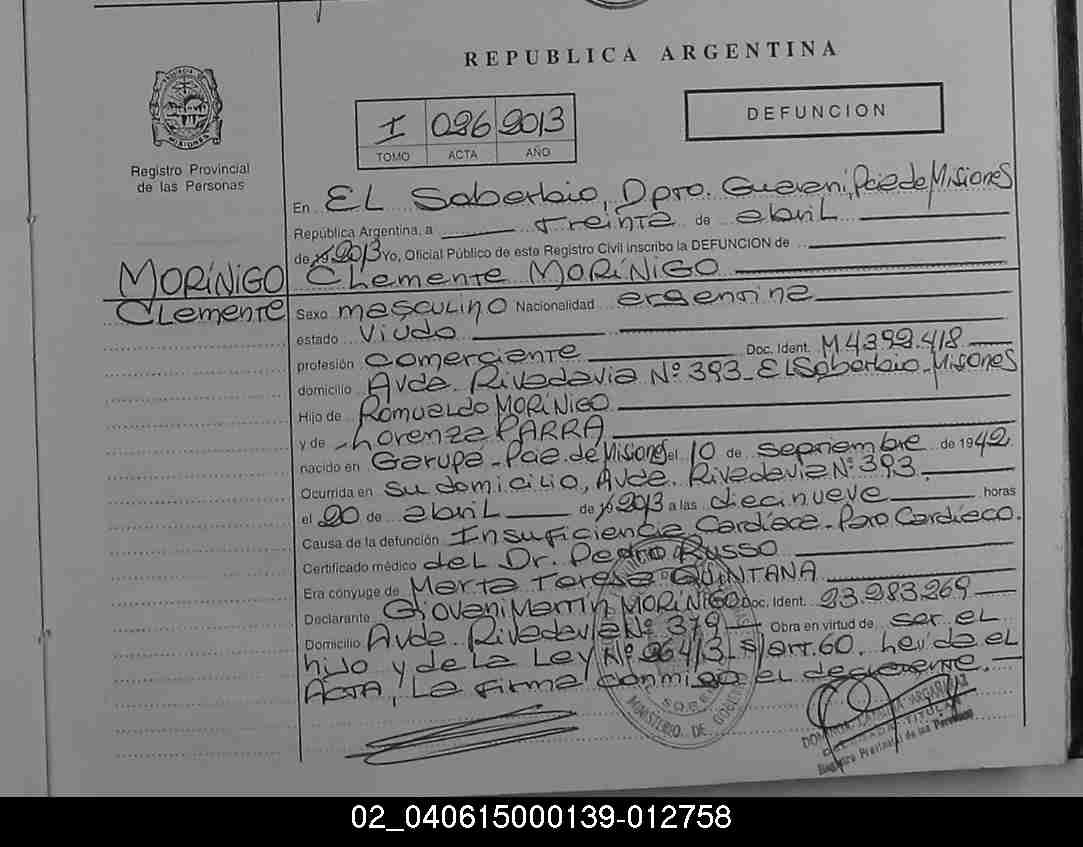 REPUBLICA ARGENTINA
PROVINCIA DE MISIONES
Registro Provincial
de las Personas
I 026 2013
TOMO ACTA AÑO
DEFUNCION
En EL Soberbio, Dpto. Guaraní, Pcia de Misiones
República Argentina, a treinta de abril
de 19 2013 Yo, Oficial Público de este Registro Civil inscribo la DEFUNCION de
MORíNIGO
Clemente
Clemente MORíNIGO
Sexo masculino Nacionalidad argentina
estado Viudo
profesión comerciante Doc. Ident. M4392.418
domicilio Avda. Rivadavia Nº 393 - El Soberbio - Misiones
Hijo de Romualdo MORíNIGO
y de Lorenza PARRA
nacido en Garupa - Pcia. de Misiones el 10 de septiembre de 1942
Ocurrida en su domicilio, Avda. Rivadavia Nº 393.
el 20 de abril de 19 2013 a las diecinueve horas
Causa de la defunción Insuficiencia Cardíaca - Paro Cardíaco.
Certificado médico del Dr. Pedro Russo
Era cónyuge de Marta Teresa QUINTANA
Declarante Giovani Martín MORíNIGO Doc. Ident. 23.283.269
Domicilio Avda. Rivadavia Nº 379 Obra en virtud de ser el
hijo y de la Ley Nº s/art. 60. Leída el
ACTA, La firma conmigo el
MINISTERIO DE
TITULAR
Registro Provincial de las Personas
02_040615000139-012758